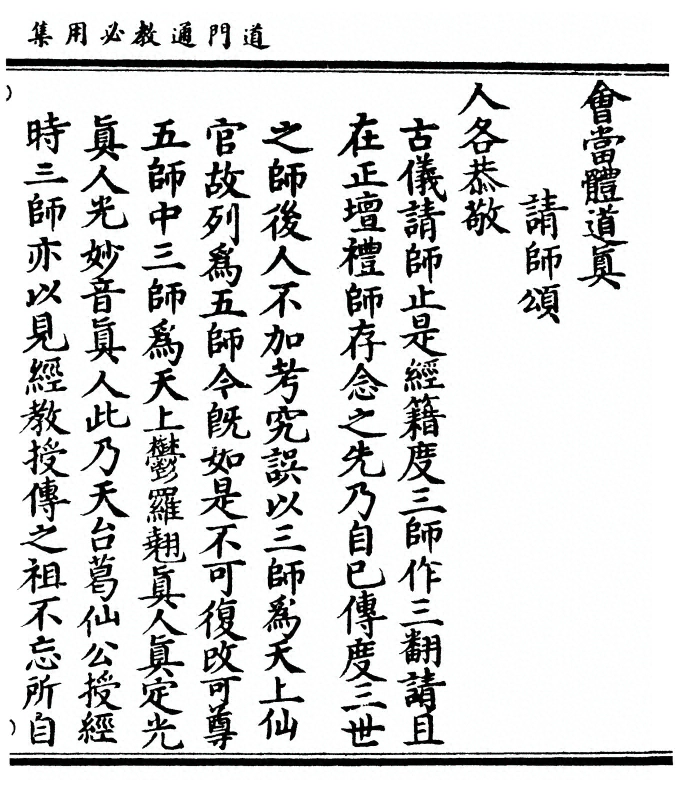 道門通教必用集
會當體道眞
請師頌
人各恭敬
古儀請師止是經籍度三師作三翻請且
在正壇禮師存念之先乃自已傳度三世
之師後人不加考究誤以三師爲天上仙
官故列爲五師今旣如是不可復改可尊
五師中三師爲天上鬱羅翹眞人眞定光
眞人光妙音眞人此乃天台葛仙公授經
時三師亦以見經教授傳之祖不忘所自